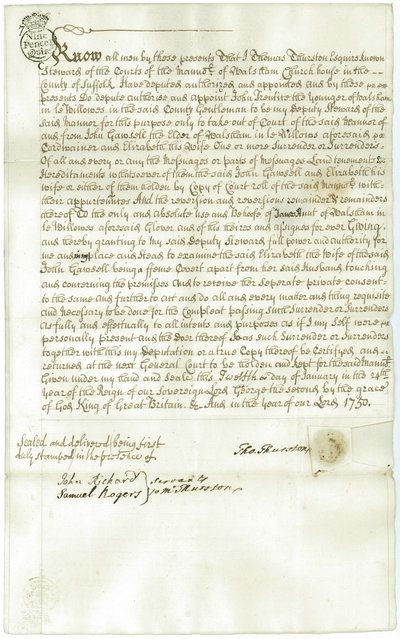 Nine
Pence
Know all men by these presents That I Thomas Thurston Esquire known
Steward of the Courts of the Mannor of Walsham Church house in the
County of Suffolk Have deputed authorized and appointed and by these
presents Do depute authorise and appoint John the younger of Walsham
in le Willowes in the said County Gentleman to be my Deputy Steward of the
said Mannor for this purpose only to take out of Court of the said Mannor of
and from John Gawsell the Elder of Walsham in le Willows aforesaid
Cordwainer and Elizabeth his Wife One or more Surrender or Surrenders
Of all and every or any the Messuages or parts of Messuages Land tenements &
Hereditaments whatsoever of them the said John Gawsell and Elizabeth his
wife or either of them holden by Copy of Court roll of the said Mannor with
their appurtenances And the reversion and reversions remainder & remainders
thereof To the only and absolute use and Behoofe of James of Walsham in
le Willowes aforesaid Glover and of his heires and assignes for ever Giving
and hereby granting to my said Deputy Steward full power and authority for
me and in my place and stead to examine the said Elizabeth the Wife of the said
John Gawsell being a ffeme Covert apart from her said Husband touching
and concerning the premisses And to receive her seperate private consent
to the same and further to act and do all and every matter and thing requisite
and Necessary to be done for the Compleat passing such Surrender or Surrenders
as fully and effectually to all intents and purposes as if I my self were
personally present and the doer thereof So as such Surrender or Surrenders
together with this my Deputation or a true Copy thereof be Certifyed and
returned at the next General Court to be holden and kept for the said Mannor
Given under my hand and Seale this Twelfth day of January in the 24th
year of the Reign of our Sovereign Lord George the second by the grace
of God King of Great Britain &c. And in the year of our Lord 1750.
Sealed and delivered being first
duly stamped in the presence of
Tho. Thurston
John Rickard } servants
Samuel Rogers } to Mr Thurston